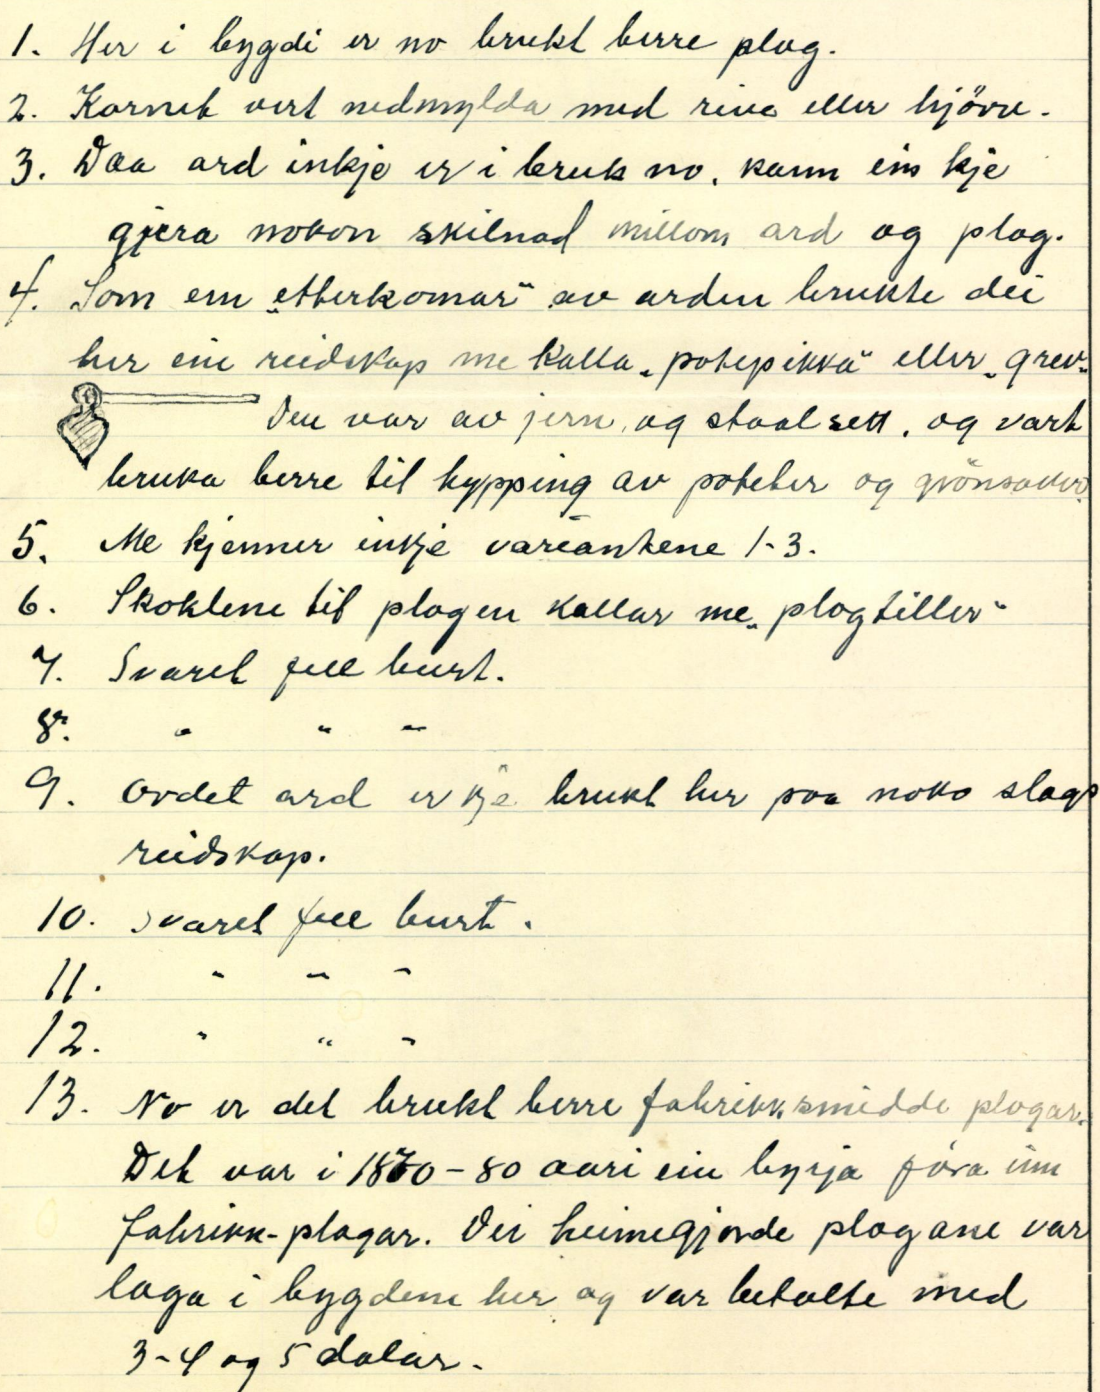 1. Her i bygdi er no brukt berre plog.
2. Kornet vert nedmylda med riva eller hjörv.
3. Daa ard inkje er i bruk no, kann ein kje
gjera nokon skilnad millom ard og plog.
4. Som ein „etterkomar“ av arden brukte dei
her ein reidskap me kalla „potepikka“ eller „grev“
Den var av jern, og staalsett, og vart
bruka berre til hypping av poteter og grönsaker.
5. Me kjenner inkje variantene 1-3.
6. Skoklene til plogen kallar me „plogtiller“
7. Svaret fell burt.
8. " " "
9. Ordet ard er kje brukt her paa noko slags
reidskap.
10. Svaret fell burt.
11. " " "
12. " " "
13. No er det brukt berre fabrikksmidde plogar.
Det var i 1870-80 aari ein byrja föra inn
fabrikk-plogar. Dei heimegjorde plogane var
laga i bygdene her og var betalte med
3-4 og 5 dalar.